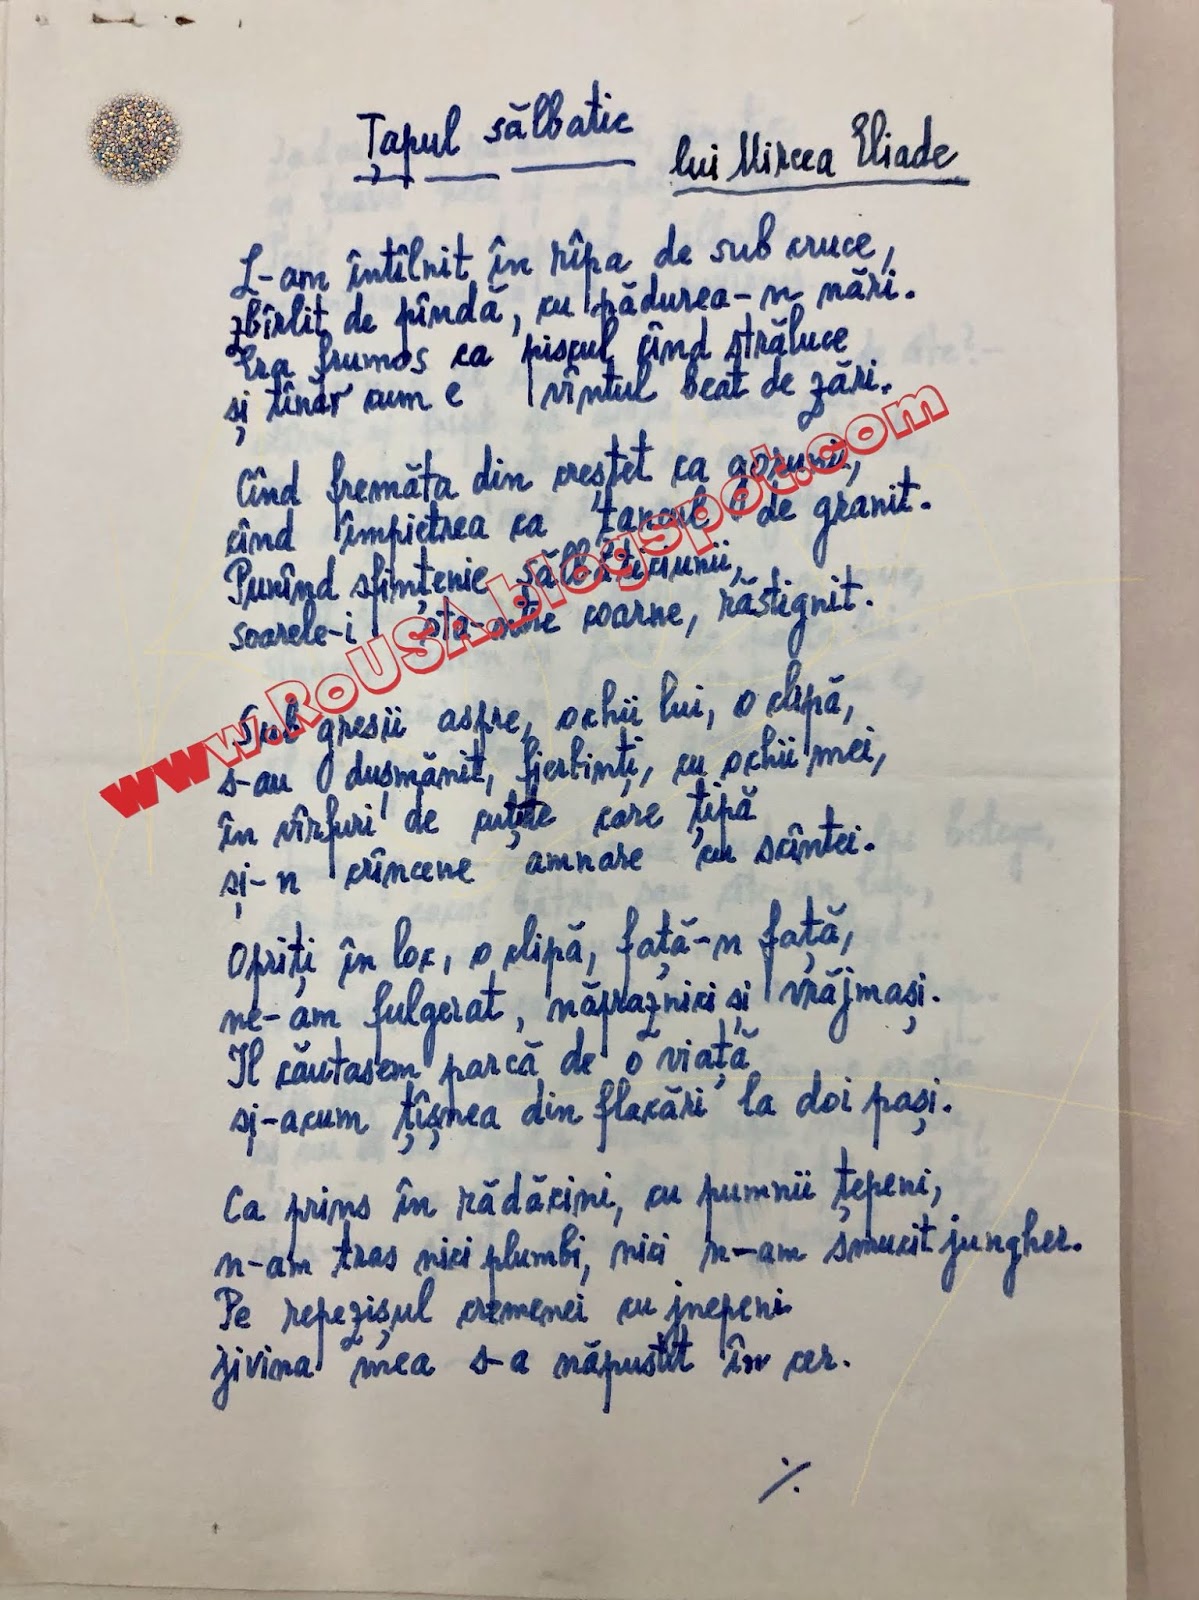 Țapul sălbatic
lui Mircea Eliade
L-am întîlnit în rîpa de sub cruce,
zbîrlit de pîndă, cu pădurea-n nări.
Era frumos ca piscul cînd străluce
și tînăr cum e vîntul beat de zări.
Cînd fremăta din creștet ca gorunii,
cînd împietrea ca țancul de granit.
Punînd sfințenie sălbăticiunii,
soarele-i sta-ntre coarne, răstignit.
www.RoUSA.blogspot.com
Sub gresii aspre, ochii lui, o clipă,
s-au dușmănit, fierbinți, cu ochii mei,
în vîrfuri de cuțite care țipă
și-n crîncene amnare cu scîntei.
Opriți în loc, o clipă, față-n față,
ne-am fulgerat, năpraznici și vrăjmași.
Il căutasem parcă de o viață
și-acum țîșnea din flacări la doi pași.
Ca prins în rădăcini, cu pumnii țepeni,
n-am tras nici plumbi, nici n-am smucit jungher.
Pe repezișul cremenei cu jnepeni
jivina mea s-a năpustit în cer.
./.